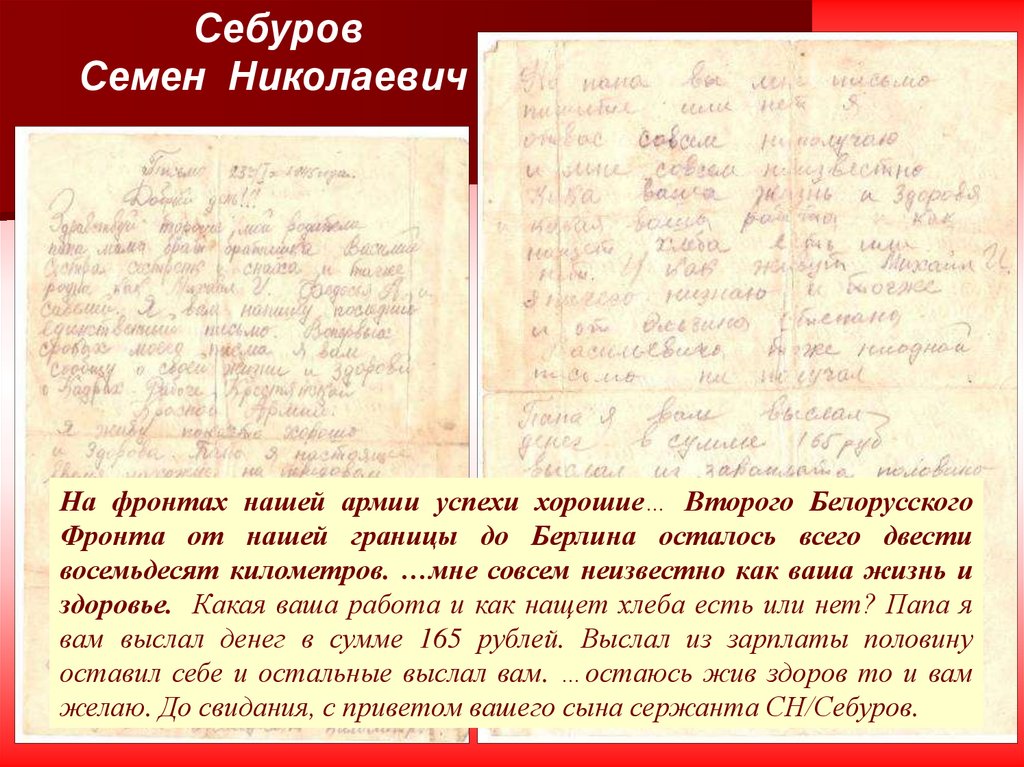 Себуров
Семен Николаевич
Письмо
Добрый день!!!
Здравствуй дорогие мои родители
папа мама брат братишка Василий
сестра и сноха и также
родня как Михаил И. Федосея
Я вам напишу последний
единственний письмо. Вопервых
строках моево писма я вам
сообщу о своей жизни и здоровй
о Рабоче Крестятской
Красной Армий.
Я живу хорошо
и здорово. я настоящее
на передовам
Но папа вы мне письмо
пишите или нет я
от вас совсем ниполучаю
и мне совсем неизвестно
кака ваша жизнь и здоровя
какая ваша работа и как
нащет хлеба есть или
нет. И как живут Михаил И.
я ничего низнаю и тогже
и от
Васильевича тоже ниодной
письмо ни получал
Папа я вам выслал
денег в сумме 165 руб
выслал из зарплата половино
На фронтах нашей армии успехи хорошие… Второго Белорусского
Фронта от нашей границы до Берлина осталось всего двести
восемьдесят километров. …мне совсем неизвестно как ваша жизнь и
здоровье. Какая ваша работа и как нащет хлеба есть или нет? Папа я
вам выслал денег в сумме 165 рублей. Выслал из зарплаты половину
оставил себе и остальные выслал вам. …остаюсь жив здоров то и вам
желаю. До свидания, с приветом вашего сына сержанта СН/Себуров.